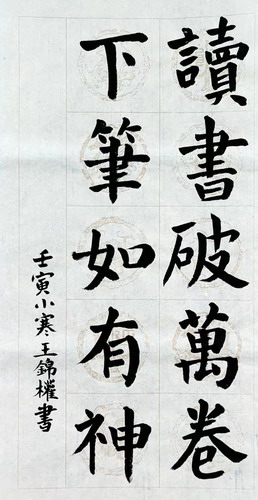 讀書破萬卷
下筆如有神
壬寅小寒王錦欋書